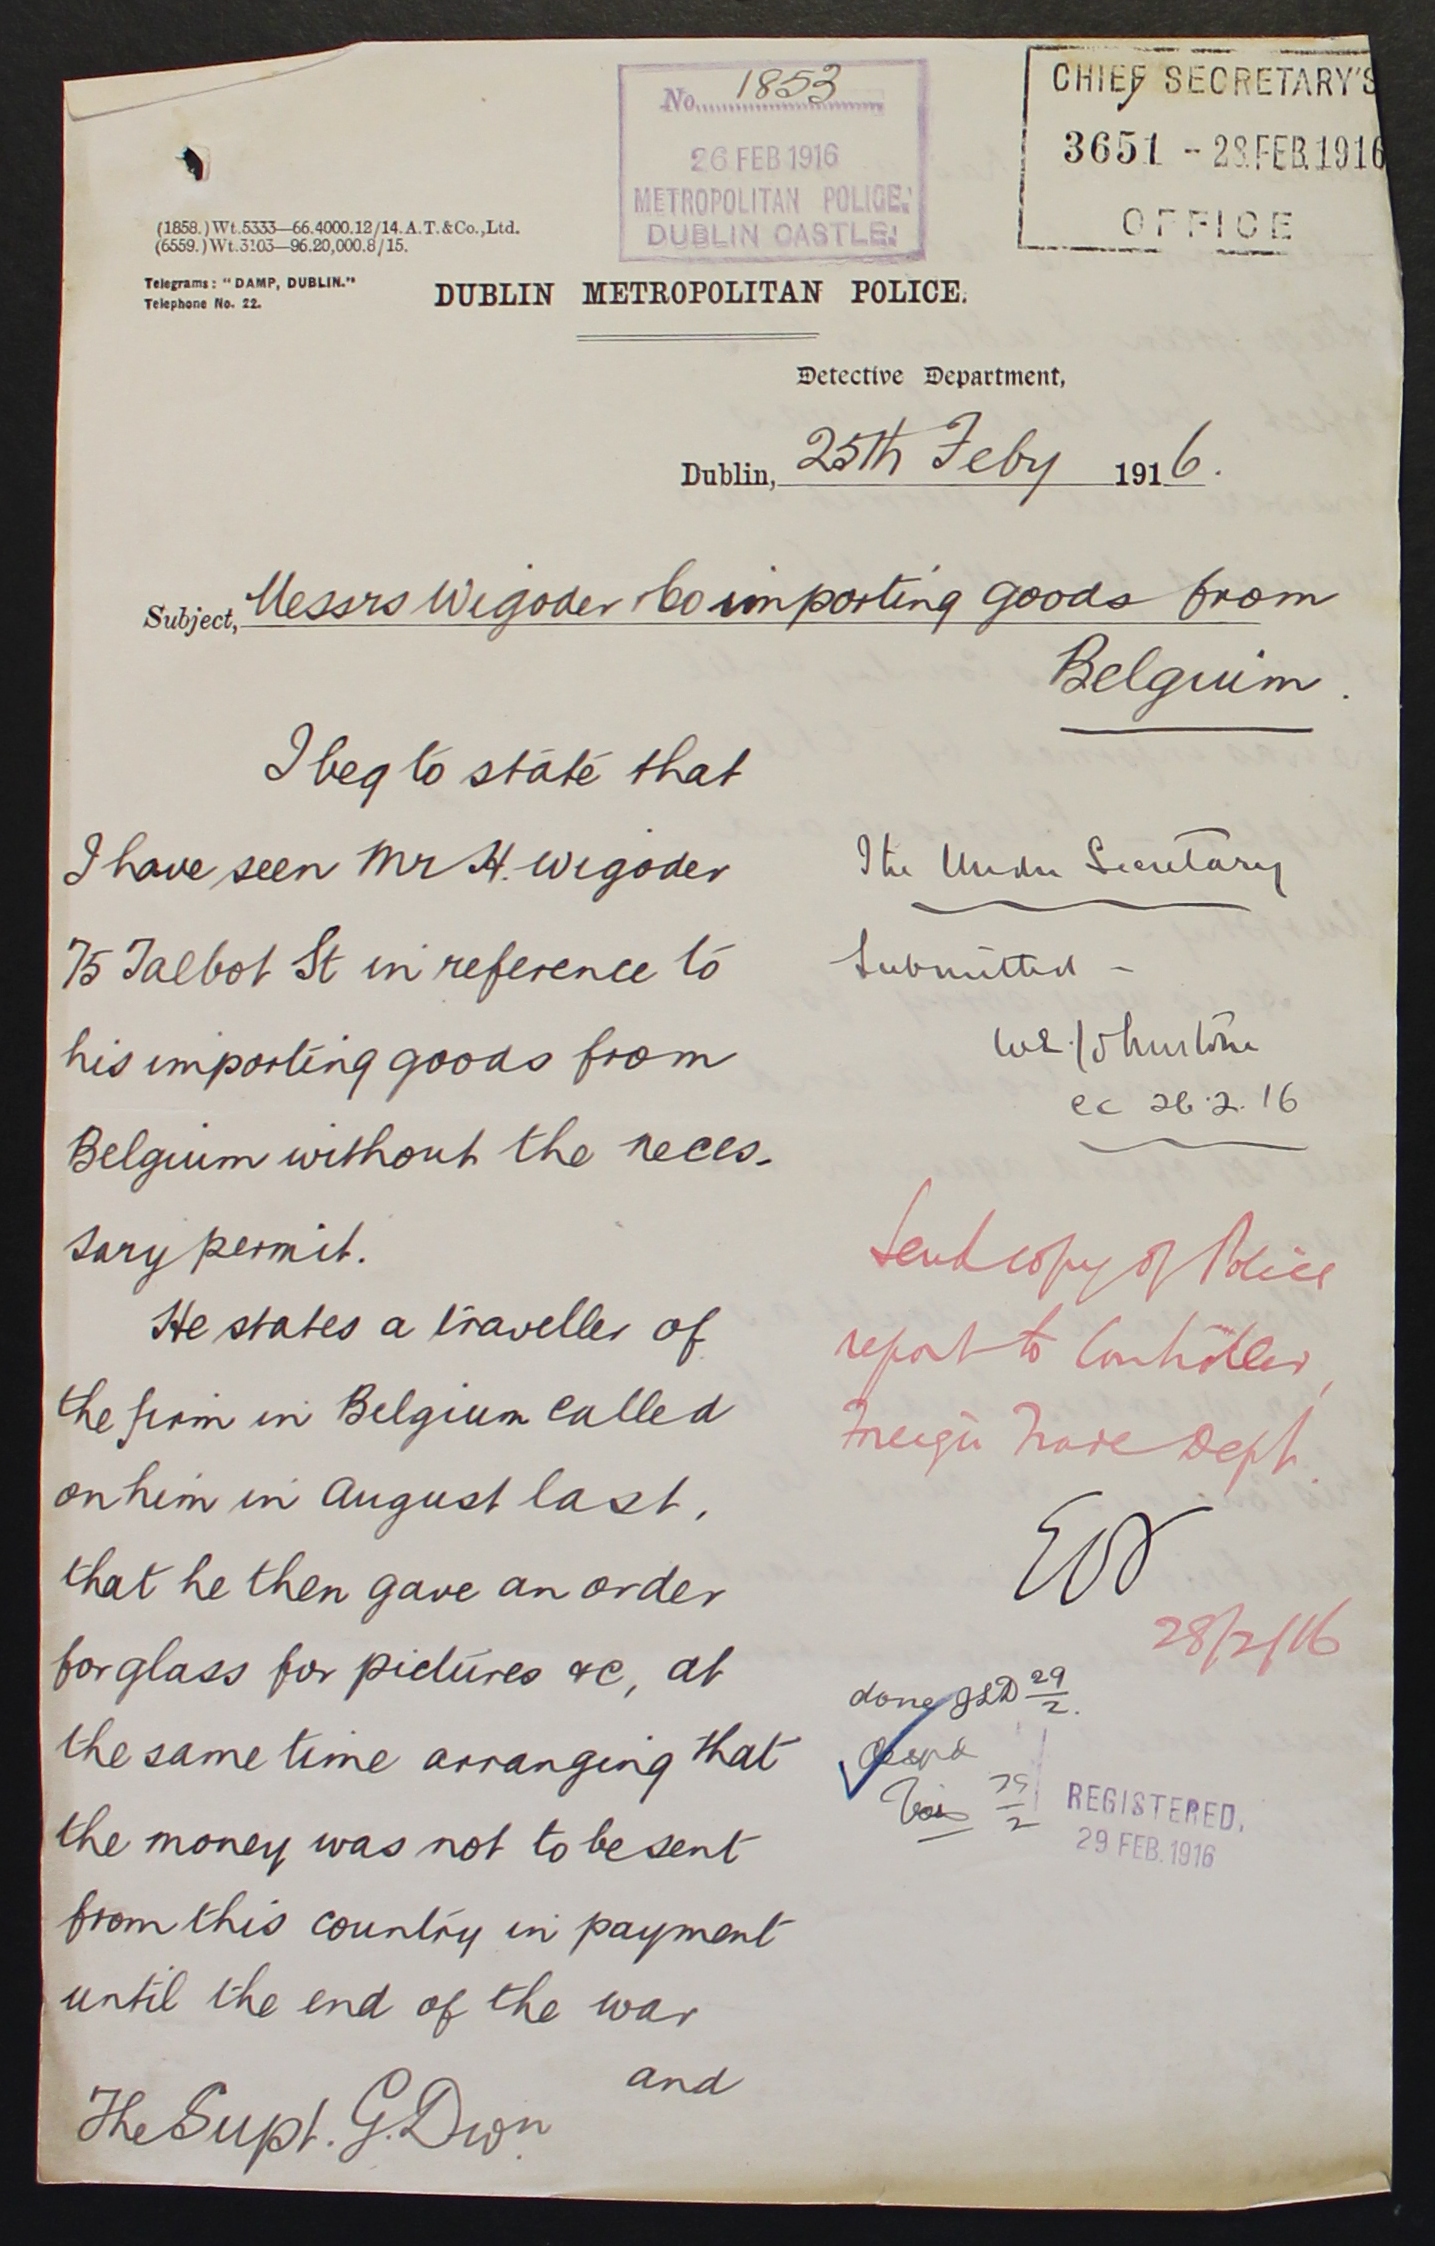 No. 1853
26 FEB 1916
METROPOLITAN POLICE.
DUBLIN CASTLE.
CHIEF SECRETARY'S
3651 - 28.FEB.1916
OFFICE
(1858.)Wt.5333—66.4000.12/14.A.T.&Co.,Ltd.
(6559.)Wt.3103—96.20,000.8/15.
Telegrams: "DAMP, DUBLIN."
Telephone No. 22.
DUBLIN METROPOLITAN POLICE.
Detective Department,
Dublin, 25th Feby 1916.
Subject, Messrs Wigoder & Co importing goods from
Belgium.
I beg to state that
I have seen Mr H. Wigoder
75 Talbot St in reference to
his importing goods from
Belgium without the neces-
sary permit.
He states a traveller of
the firm in Belgium called
on him in August last,
that he then gave an order
for glass for pictures &c, at
the same time arranging that
the money was not to be sent
from this country in payment
until the end of the war
and
The Supt. G. Divn
The Under Secretary
Submitted -
W.E. Johnstone
CC 26.2.16
Send copy of Police
report to Controller,
Foreign Trade Dept.
28/2/16
done JLD 29/2.
29/2
REGISTERED.
29 FEB. 1916